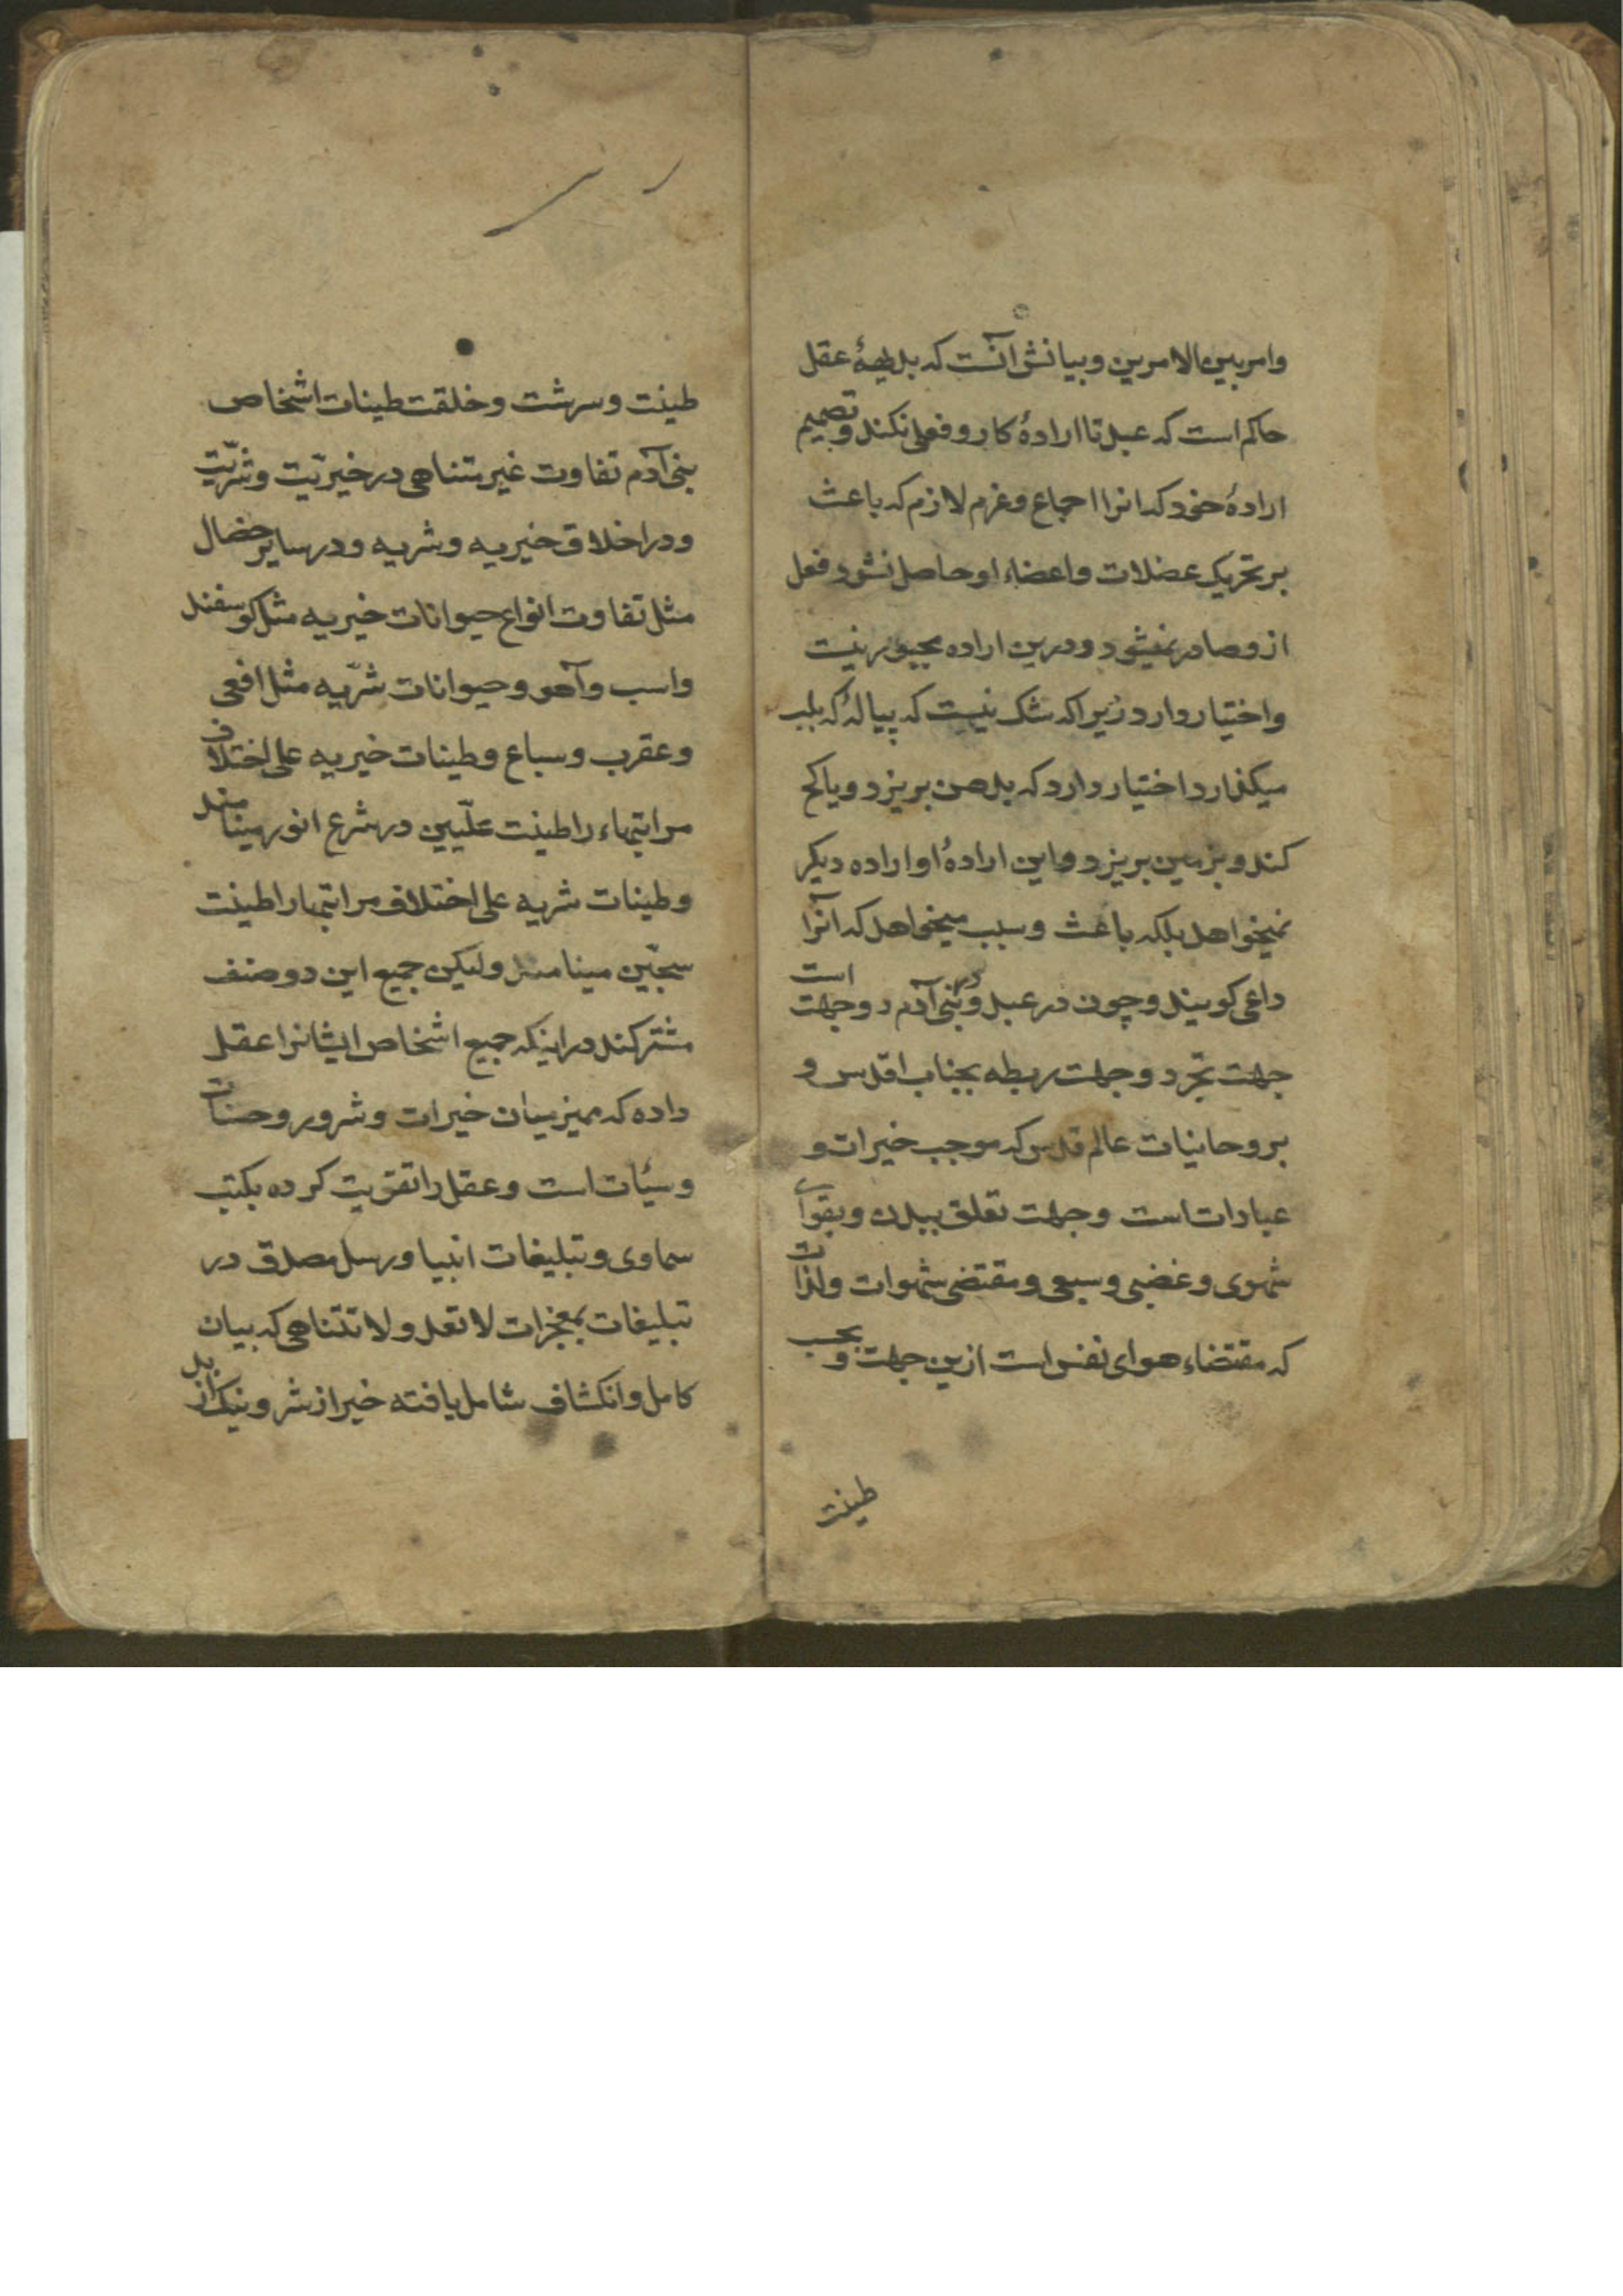 وامر بین الامرین و بیانش آنست که بدیههٔ عقل
حاکم است که عبد تا ارادهٔ کار و فعلی نکند و تصمیم
ارادهٔ خود که انرا اجماع و عزم لازم که باعث
بر تحریک عضلات و اعضاء او حاصل نشود فعل
ازو صادر نمیشود و درین اراده مجبور نیست
و اختیار دارد زیرا که شک نیست که پیالهٔ که بلب
میکذارد اختیار دارد که بدهن بریزد و یا کج
کند و بزمین بریزد و این ارادهٔ او اراده دیکر
نمیخواهد بلکه باعث و سبب میخواهد که آنرا
داعی کویند و چون در عبد و بنی آدم دو جهت است
جهت تجرد و جهت ربطه بجناب اقدس و
بروحانیات عالم قدس که موجب خیرات و
عبادات است و جهت تعلق ببدن و بقوای
شهوی و غضبی و سبعی و مقتضی شهوات و لذات
که مقتضاء هوای نفس است ازین جهت و بحسب
طینت
طینت و سرشت و خلقت طینات اشخاص
بنی آدم تفاوت غیر متناهی در خیریّت و شرّیّت
و در اخلاق خیریه و شریه و در سایر خصال
مثل تفاوت انواع حیوانات خیریه مثل کوسفند
و اسب و آهو و حیوانات شرّیه مثل افعی
و عقرب و سباع و طینات خیریه علی اختلاف
مراتبهاء را طینت علّیین در شرع انور مینامند
و طینات شریه علی اختلاف مراتبها را طینت
سجّین مینامند و لیکن جمیع این دو صنف
مشترکند در اینکه جمیع اشخاص ایشانرا عقل
داده که ممیز میان خیرات و شرور و حسنات
و سیّئات است و عقل را تقویت کرده بکتب
سماوی و تبلیغات انبیا و رسل مصدق در
تبلیغات بمعجزات لا تعد و لا تتناهی که بیان
کامل و انکشاف شامل یافته خیر از شر و نیک از بد